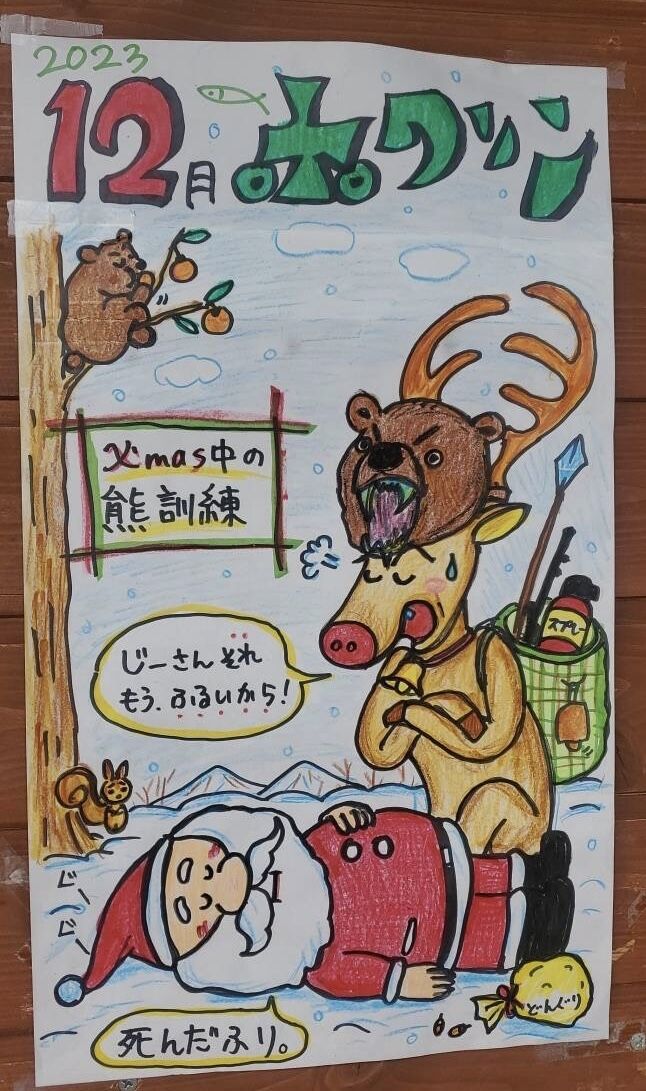 2023
12月 ホワソン
X'mas中の
熊訓練
スプレー
じーさんそれ
もう、ふるいから!
じーじー
どんぐり
死んだふり。